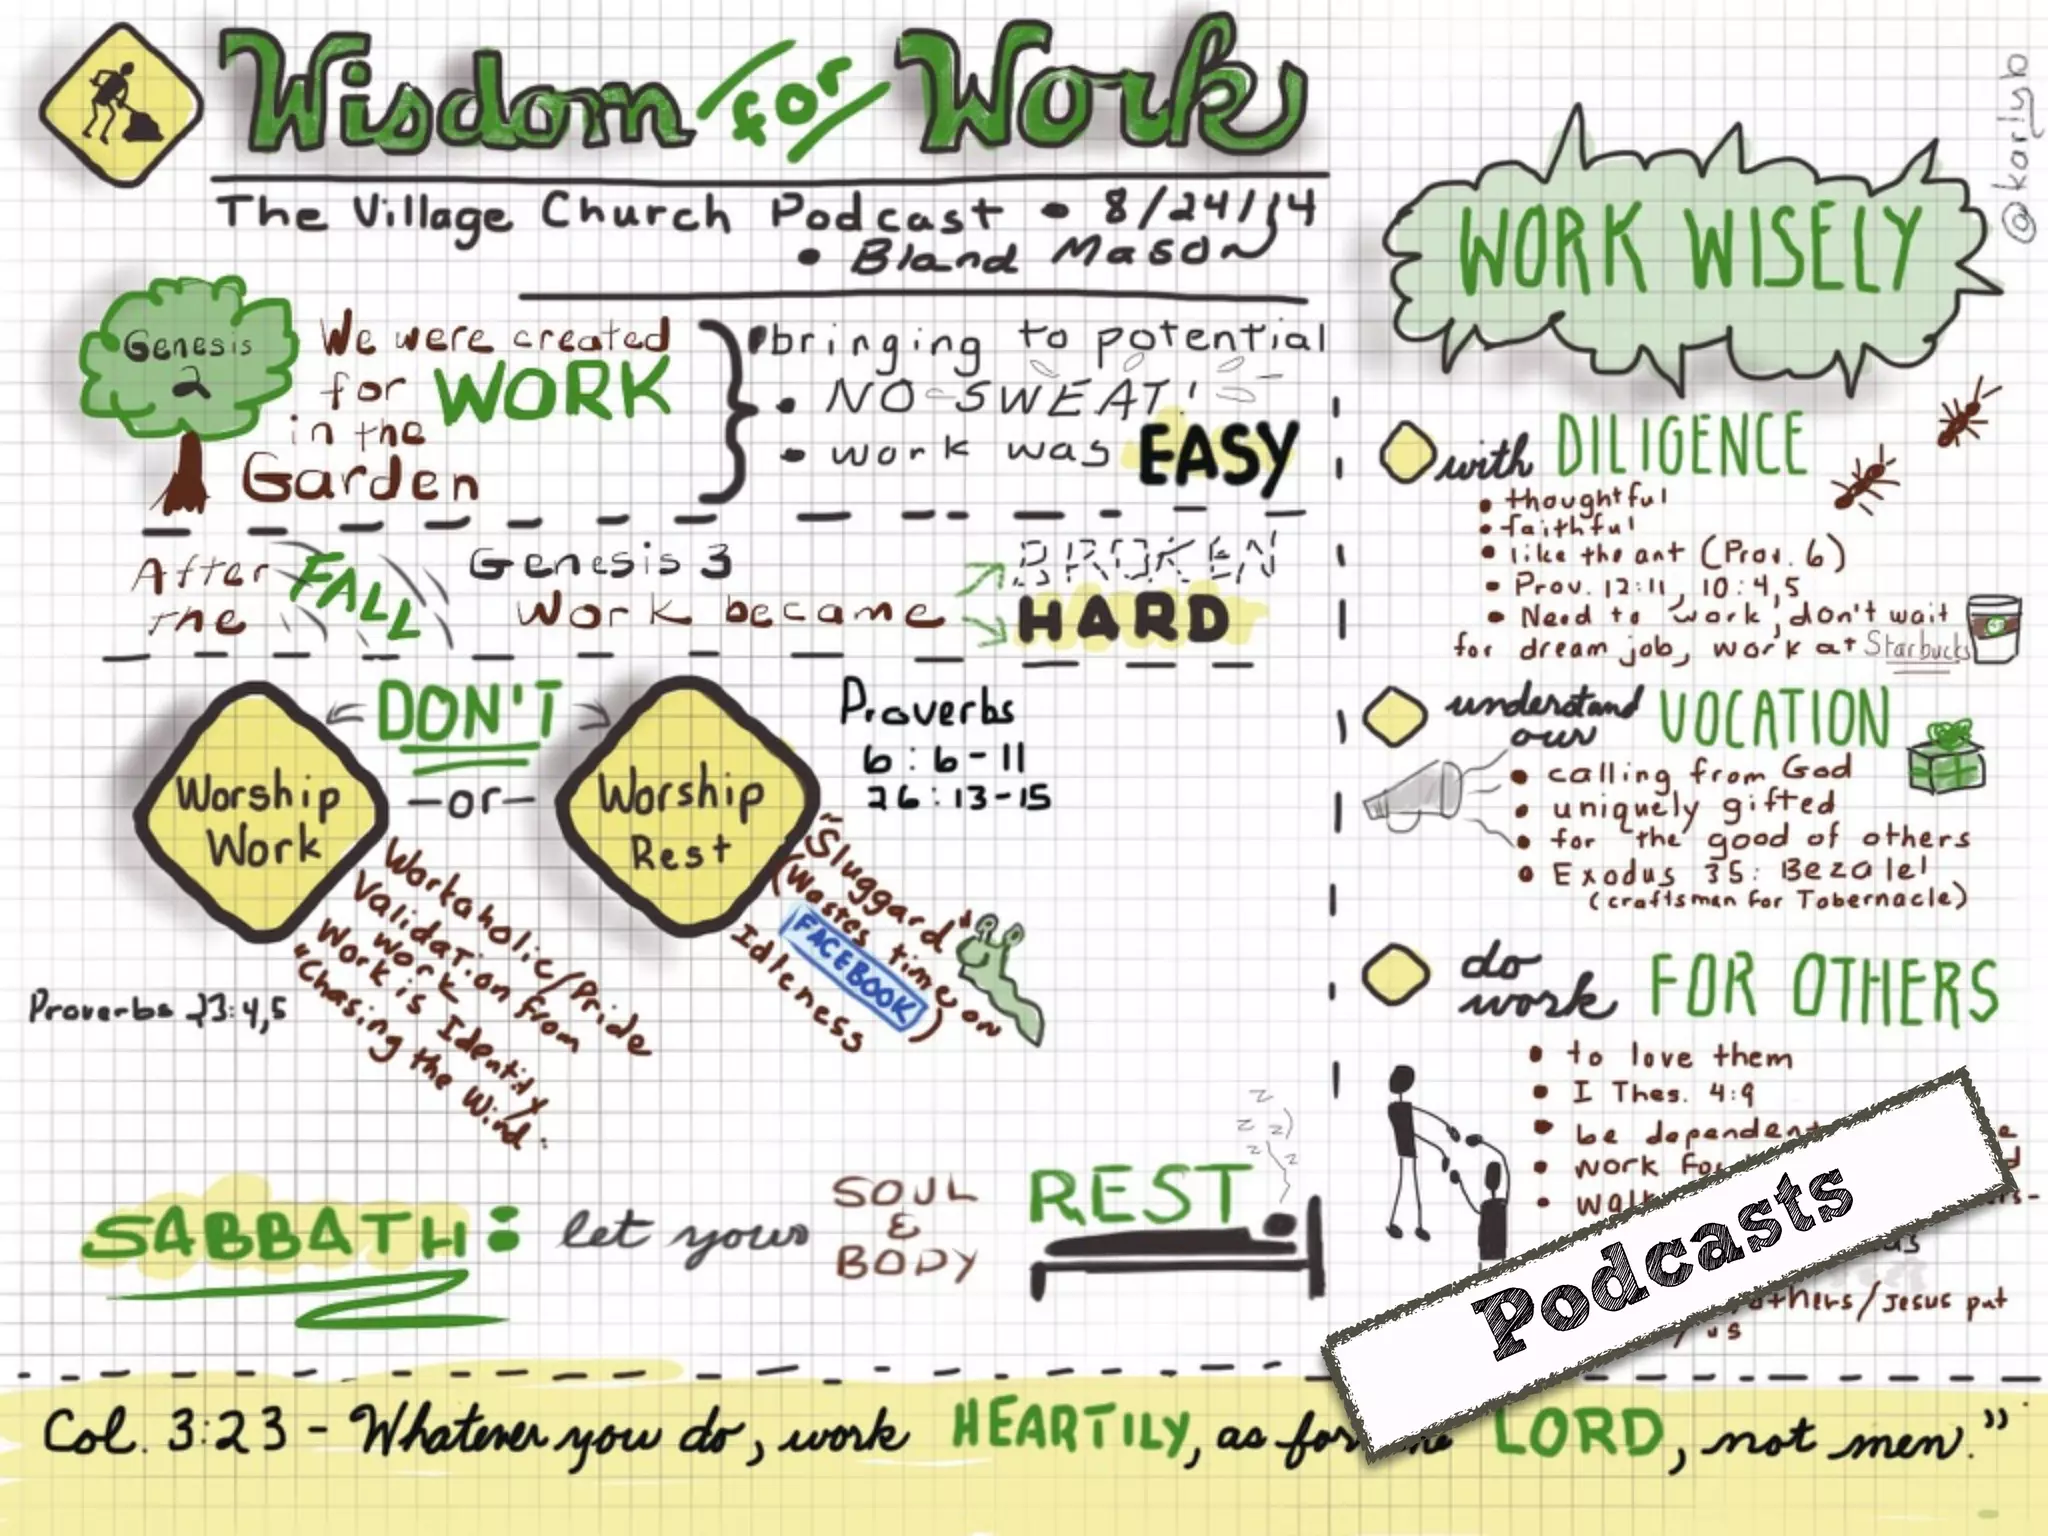 Wisdom for Work
The Village Church Podcast • 8/24/14
• Bland Mason
@karlyb
Genesis
2
We were created
for WORK
in the
Garden
• bringing to potential
• NO-SWEAT!
• work was EASY
After
the
FALL
Genesis 3
work became
BROKEN
HARD
DON'T
Worship
Work
-or-
Worship
Rest
Proverbs
6:6-11
26:13-15
Workaholic/Pride
Validation from
Work
Work is Identity
"Chasing the Wind."
Proverbs 23:4,5
"Sluggard"
(Wastes time on
FACEBOOK)
Idleness
SABBATH: let your
SOUL
&
BODY
REST
z
z z
z z
WORK WISELY
with DILIGENCE
• thoughtful
• faithful
• like the ant (Prov. 6)
• Prov. 12:11, 10:4,5
• Need to work, don't wait
for dream job, work at Starbucks
understand
our
VOCATION
• calling from God
• uniquely gifted
• for the good of others
• Exodus 35: Bezalel
(craftsman for Tabernacle)
do
work
FOR OTHERS
• to love them
• I Thes. 4:9
• be dependent
• work for
• walk
others/Jesus put
us
Podcasts
Col. 3:23 - Whatever you do, work HEARTILY, as for the LORD, not men."